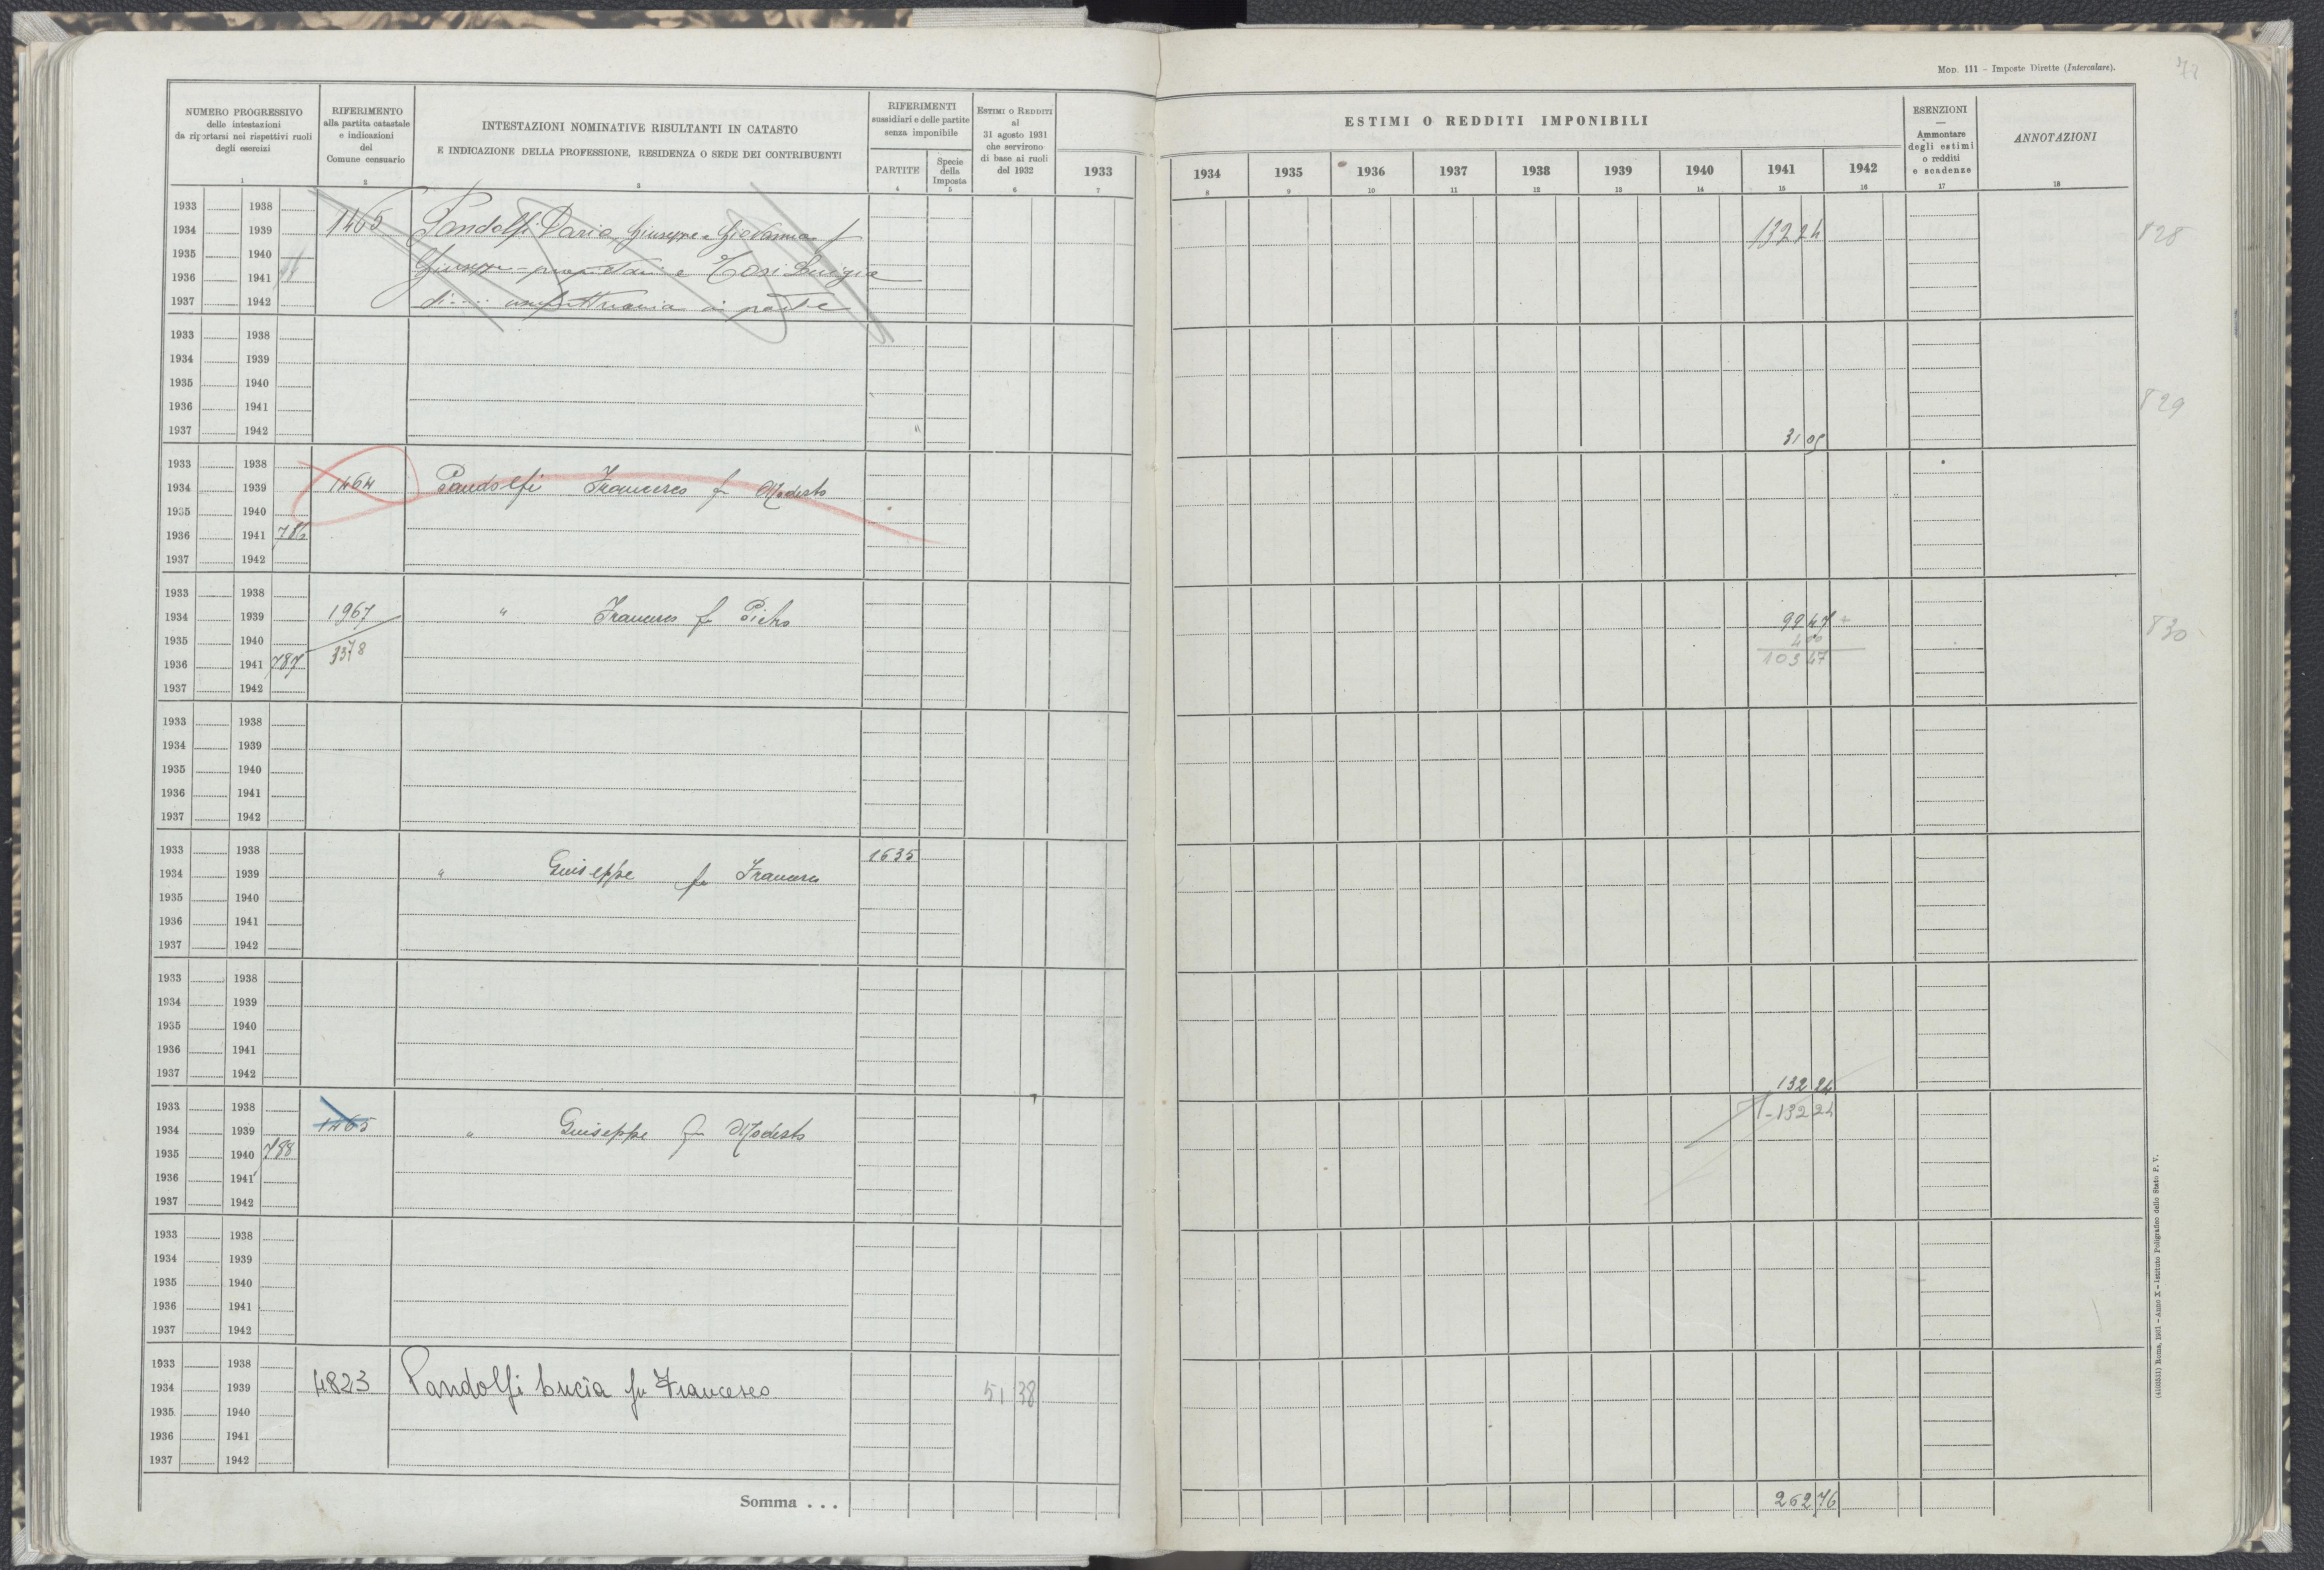 Mod. 111 - Imposte Dirette (Intercalare).
72
NUMERO PROGRESSIVO
delle intestazioni
da riportarsi nei rispettivi ruoli
degli esercizi
RIFERIMENTO
alla partita catastale
e indicazioni
del
Comune censuario
INTESTAZIONI NOMINATIVE RISULTANTI IN CATASTO
E INDICAZIONE DELLA PROFESSIONE, RESIDENZA O SEDE DEI CONTRIBUENTI
RIFERIMENTI
sussidiari e delle partite
senza imponibile
PARTITE
Specie
della
Imposta
Estimi o Redditi
al
31 agosto 1931
che servirono
di base ai ruoli
del 1932
ESTIMI O REDDITI IMPONIBILI
1933 1934 1935 1936 1937 1938 1939 1940 1941 1942
ESENZIONI
—
Ammontare
degli estimi
o redditi
e scadenze
ANNOTAZIONI
1 2 3 4 5 6 7 8 9 10 11 12 13 14 15 16 17 18
1933 1938
1934 1939 1465 Pandolfi Daria Giuseppe e Giovanna f 132 24 828
1935 1940 Giuseppe - proprietari e Tosi Luigia
1936 1941
1937 1942 di .... usufruttuaria in parte
1933 1938
1934 1939
1935 1940
1936 1941 829
1937 1942 " 31 05
1933 1938
1934 1939 1464 Pandolfi Francesco fu Modesto
1935 1940
1936 1941 786
1937 1942
1933 1938
1934 1939 1967 " Francesco fu Pietro 99 47 + 830
1935 1940 3378 4 00
1936 1941 787 103 47
1937 1942
1933 1938
1934 1939
1935 1940
1936 1941
1937 1942
1933 1938 1635
1934 1939 " Giuseppe fu Francesco
1935 1940
1936 1941
1937 1942
1933 1938
1934 1939
1935 1940
1936 1941
1937 1942 132 24
1933 1938 - 132 24
1934 1939 1465 " Giuseppe fu Modesto
1935 1940 788
1936 1941
1937 1942
1933 1938
1934 1939
1935 1940
1936 1941
1937 1942
1933 1938
1934 1939 4823 Pandolfi Lucia fu Francesco 51 38
1935 1940
1936 1941
1937 1942
Somma . . . 262 76
Roma, 1931 - Anno X - Istituto Poligrafico dello Stato P. V.